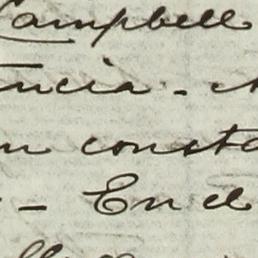 Campbell
encia -
n consta
- En el